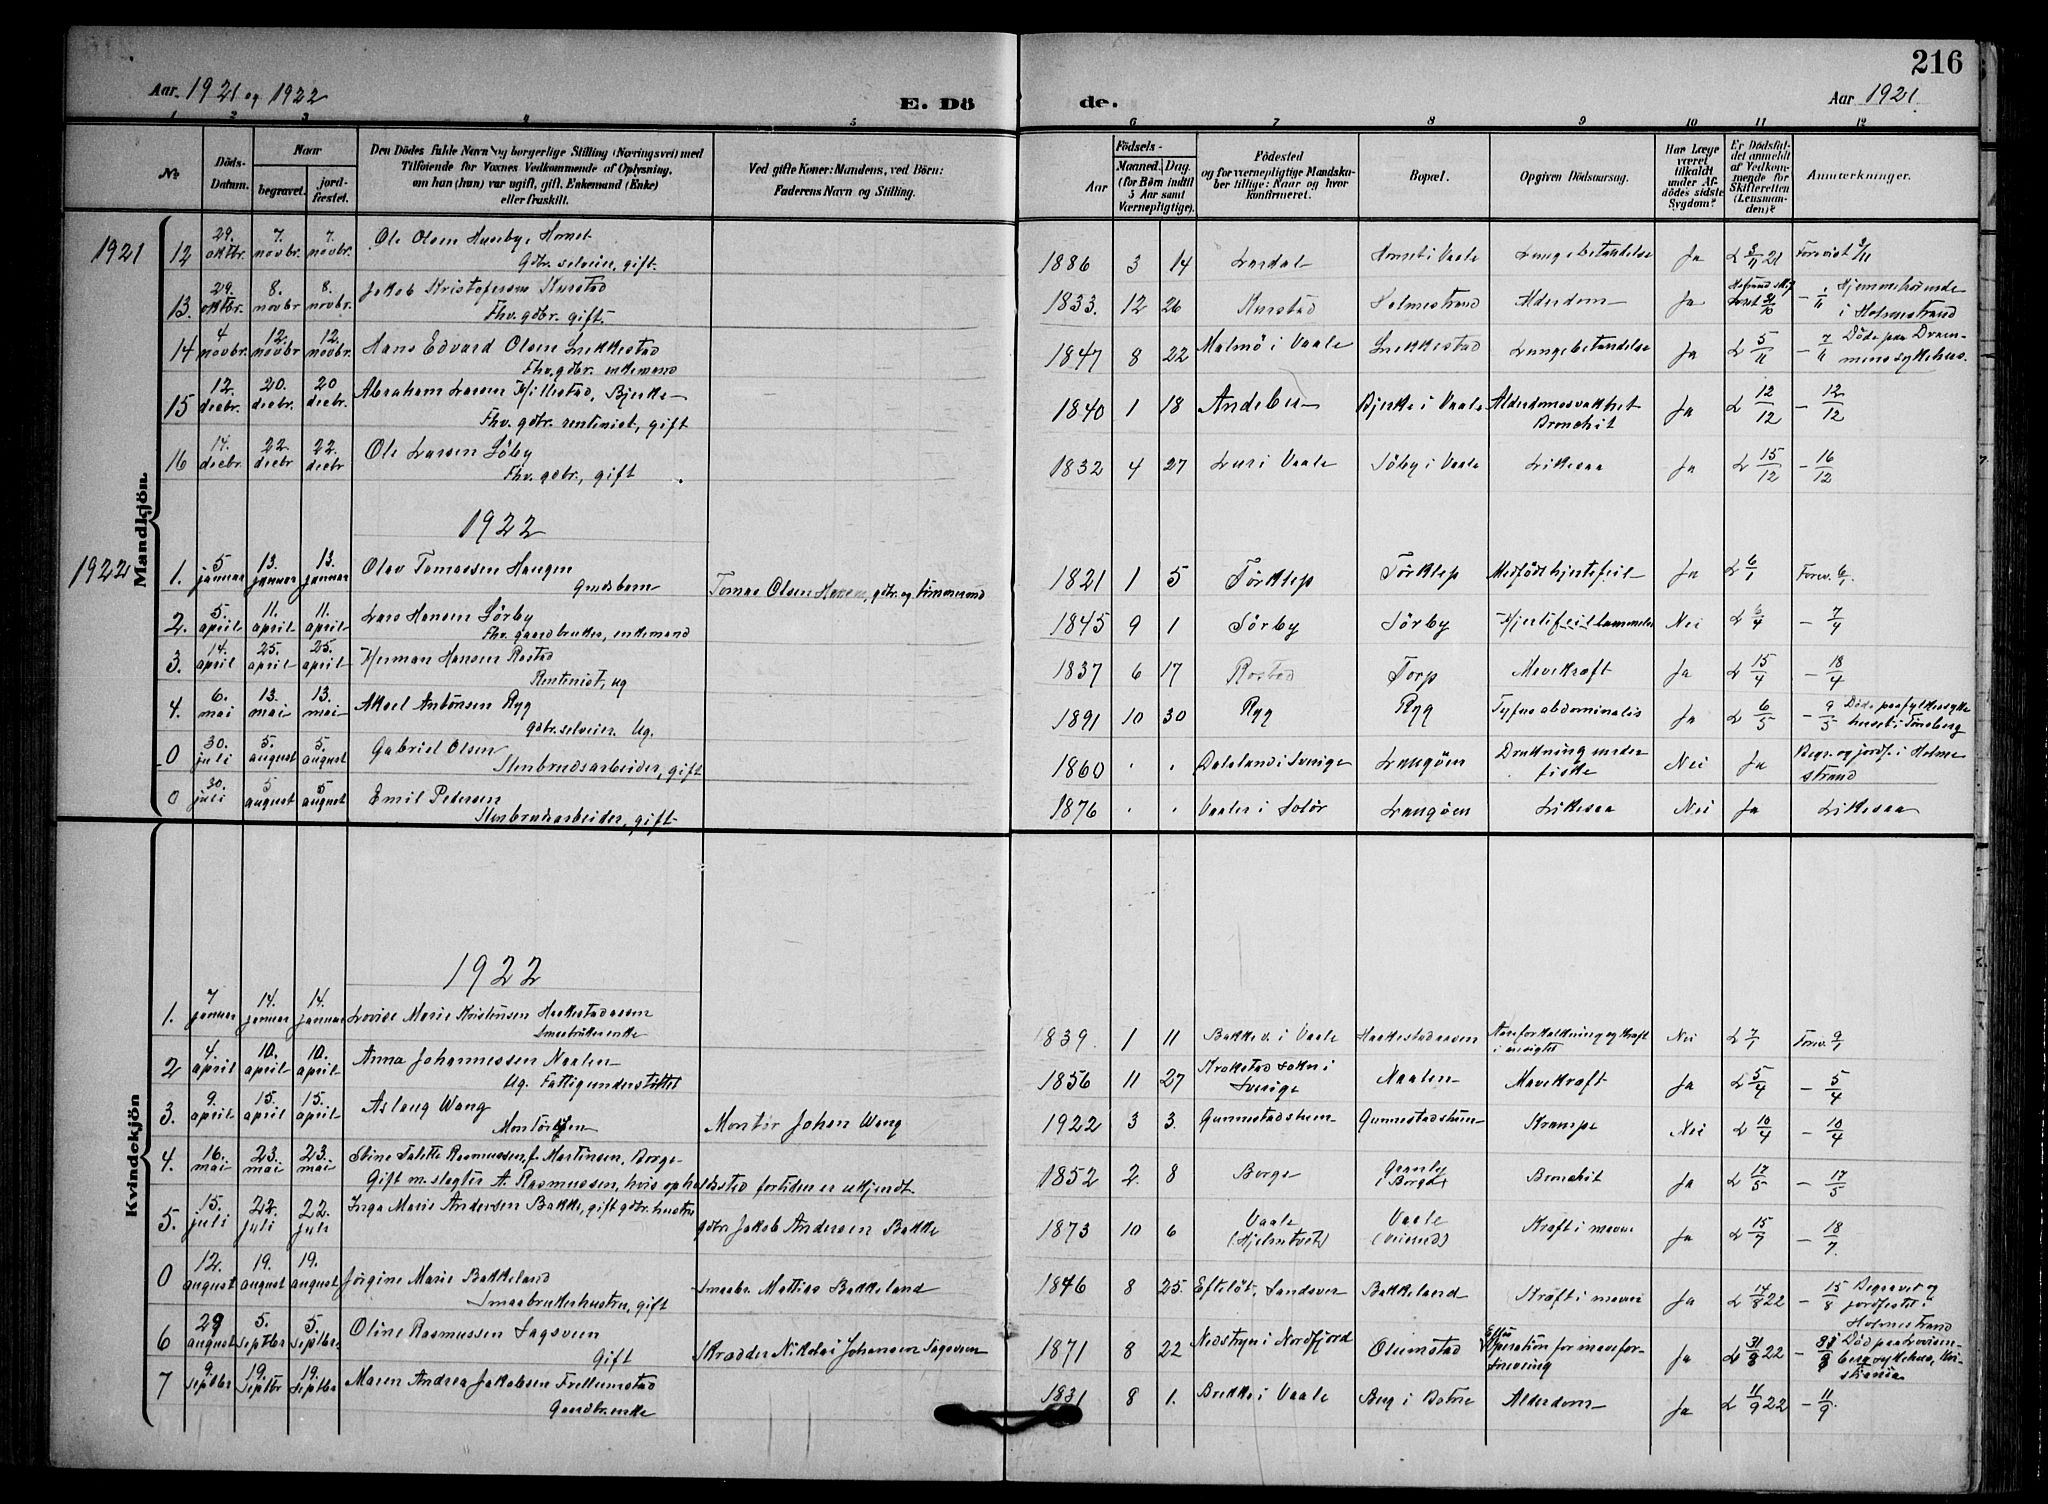 216
Aar. 1921 og 1922
E. Dö
de.
Aar 1921.
1 2 3 4 5 6 7 8 9 10 11 12
№
Döds-Datum.
Naar
begravet.
jord-fæstet.
Den Dödes fulde Navn og borgerlige Stilling (Næringsvei) med
Tilföiende for Voxnes Vedkommende af Oplysning,
om han (hun) var ugift, gift, Enkemand (Enke)
eller fraskilt.
Ved gifte Koner: Mandens, ved Börn:
Faderens Navn og Stilling.
Aar
Födsels-
Maaned. Dag
(for Börn indtil
5 Aar samt
Værnepligtige).
Födested
og for værnepligtige Mandska-
ber tillige: Naar og hvor
konfirmeret.
Bopæl.
Opgiven Dödsaarsag.
Har Læge
været
tilkaldt
under Af-
dödes sidste
Sygdom?
Er Dödsfal-
det anmeldt
af Vedkom-
mende for
Skifteretten
(Lensman-
den)?
Anmærkninger.
Mandkjön.
1921
12 29. oktbr. 7. novbr. 7. novbr. Ole Olsen Huseby, Hornet Gdbr. selveier, gift. 1886 3 14 Lardal Hornet i Vaale Lungebetændelse Ja L 3/11 21 Forevist 9/11
13. 29. oktbr. 8. novbr 8. novbr. Jakob Kristofersen Thorstad Fhv. gdbr. gift. 1833. 12 26 Holmestrand Alderdom Ja 31/10 - 1/11 Hjemmehörende i Holmestrand
14 4 novbr. 12. novbr 12. novbr. Hans Edvard Olsen Snekkestad Fhv. gdbr. enkemand 1847 8 22 Malmö i Vaale Snekkestad Lungebetændelse Ja L 5/11 - 7/11 Döde paa Drammens sykehus.
15 12. decbr. 20. decbr. 20 decbr. Abraham Larsen Hillestad, Bjerke Fhv. gdbr. rentenist, gift 1840 1 18 Andebu Bjerke i Vaale Alderdomssvakhet Bronchit Ja L 12/12 - 12/12
16 17. decbr. 22. decbr 22. decbr Ole Larsen Söby Fhv. gdbr., gift 1832 4 27 Lur i Vaale Söby i Vaale Likesaa Ja L 15/12 - 16/12
1922
1922
1. 5 januar 13. januar 13. januar Olav Tomassen Haugen Gaardsbarn Tomas Olsen Haugen, gdbr. og tömmermand 1821 1 5 Törklep Törklep Medfödt hjertefeil Ja L 6/1 Forev. 6/1
2. 5. april 11. april 11. april Lars Hansen Sörby Fhv. gaardbruker, enkemand 1845 9 1 Sörby Sörby Hjertefeil lammelse Nei L 6/4 - 7/4
3. 14. april 25. april 25. april Herman Hansen Rostad Rentenist, ug 1837 6 17 Rostad Torp Mavekræft Ja L 15/4 - 18/4
4. 6. mai 13. mai 13. mai Aksel Antonsen Ryg Gdbr. selveier. Ug. 1891 10 30 Ryg Ryg Tyfus abdominalis Ja L 6/5 - 9/5 Döde paa fylkessykehuset i Tönsberg
0 30. juli 5. august 5. august Gabriel Olsen Stenbrudsarbeider, gift 1860 . . Dalsland i Sverige Langöen Drukning under fiske Nei Ja Begr. og jordf. i Holmestrand
0 30. juli 5 august 5 august Emil Pedersen Stenbrudsarbeider, gift 1876 . . Vaaler i Solör Langöen Likesaa Nei Ja Likesaa
Kvindekjön
1922
1. 7 januar 14. januar 14. januar Lovise Marie Kristensen Haekestadaasen Smaabrukerenke 1839. 1 11 Bakke v. i Vaale Haekestadaasen Aareforkalkning og kræft i ansigtet Nei L 7/1 Forev. 9/1
2 4. april 10. april 10. april Anna Johannessen Naalen Ug. Fattigunderstöttet 1856 11 27 Krokstad sokn i Sverige Naalen Mavekræft Ja L 5/4 - 5/4
3. 9. april 15. april 15. april Aslaug Wang Montörbarn Montör Johan Wang 1922 3 3. Gunnestadstuen Gunnestadstuen Krampe Nei L 10/4 - 10/4
4. 16. mai 23. mai 23. mai Stine Talette Rasmussen, f. Martinsen, Borge Gift m. slegter A. Rasmussen, hvis opholdssted fortiden er ukjendt. 1852 2. 8 Borge Bronchit Ja L 17/5 - 17/5
5. 15. juli 22. juli 22. juli Inga Marie Andersen Bakke, gift gdbr. hustru gdbr. Jakob Andersen Bakke 1873 10 6 Vaale (Hjelmtvet) Vaale Kræft i maven Ja L 15/7 - 18/7.
0 12. august 19. august 19. august Jörgine Marie Bakkeland Smaabrukerhustru, gift Smaabr. Mathias Bakkeland 1846 8 25. Efteløt, Sandsvær Bakkeland Kræft i maven Ja L 14/8 22 - 15/8 Begravet og jordfæstet i Holmestrand
6 29 august 5. septbr 5. septbr. Oline Rasmussen Sagsveen Gift Skrædder Nikolai Johansen Sagsveen 1871 8 22 Nedstryn i Nordfjord Olumstad Efter Operation for maveforsnevring Ja L 31/8 22 Död paa Lovisenberg sykehus, Kristiania
7 9. septbr 19. septbr 19. septbr Maren Andrea Jakobsen Frellumstad Gaardbr. enke 1831 8 1. Brekke i Vaale Berg i Botne Alderdom Ja L 11/9 22 - 11/9.